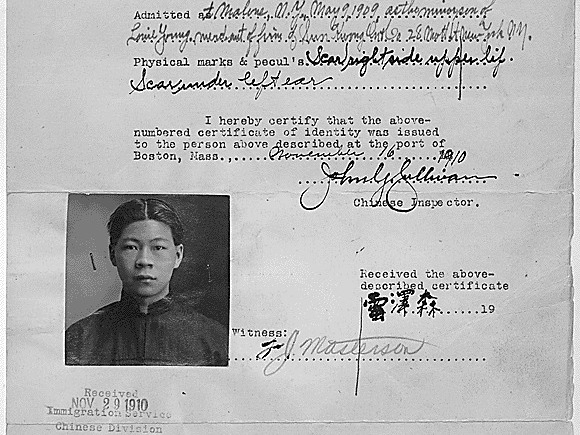 Admitted at Malone, N.Y., May 9, 1909, as the minor son of
Louie Young, merchant of firm of Kwong Co. 26 Mott St New York N.Y.
Physical marks & pecul's. Scar right side upper lip.
Scar under left ear
I hereby certify that the above-
numbered certificate of identity was issued
to the person above described at the port of
Boston, Mass., November 16 1910
John G. Sullivan
Chinese Inspector.
Received the above-
described certificate
雷澤森 19
Witness:
J. Masterson
Received
NOV 29 1910
Immigration Service
Chinese Division